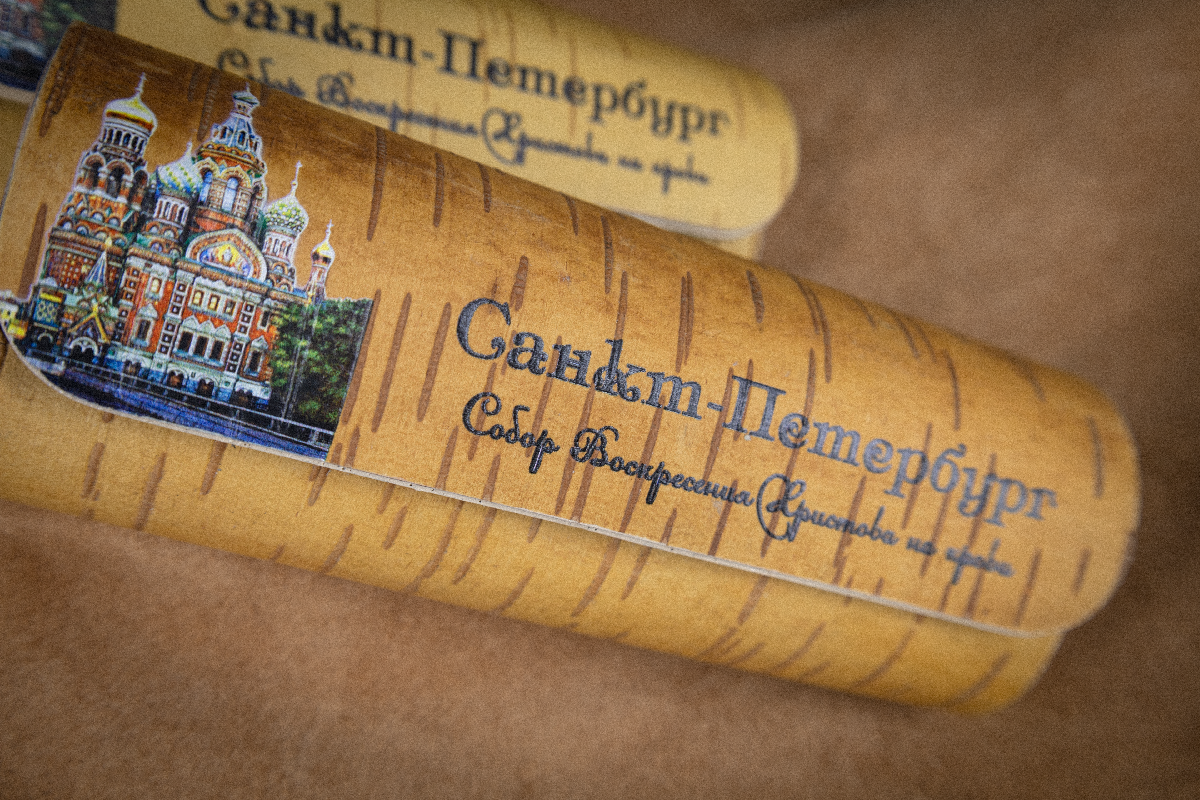 Санкт-Петербург
Собор Воскресения Христова на крови
Санкт-Петербург
Собор Воскресения Христова на крови